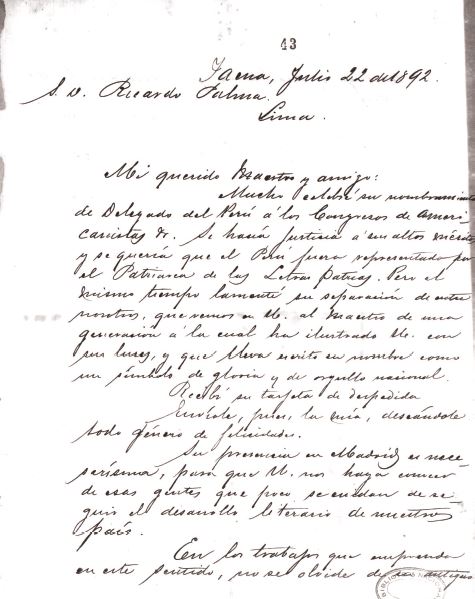 43
Tacna, Julio 22 de 1892.
S. D. Ricardo Palma.
Lima.
Mi querido Maestro y amigo:
Mucho celebré su nombramiento
de Delegado del Perú á los Congresos de Ameri-
canistas &. Se hacía justicia á sus altos méritos
y se quería que el Perú fuera representado por
el Patriarca de las Letras Patrias. Pero al
mismo tiempo lamenté su separación de entre
nosotros, que vemos en U. al Maestro de una
generación á la cual ha ilustrado U. con
sus luces, y que lleva escrito su nombre como
un símbolo de gloria y de orgullo nacional.
Recibí su tarjeta de despedida
Envíole, pues, la mía, deseándole
todo género de felicidades.
Su presencia en Madrid es nece-
sarísima, para que U. nos haga conocer
de esas gentes que poco se cuidan de se-
guir el desarrollo literario de nuestro
país.
En los trabajos que emprenda
en este sentido, no se olvide de su antiguo